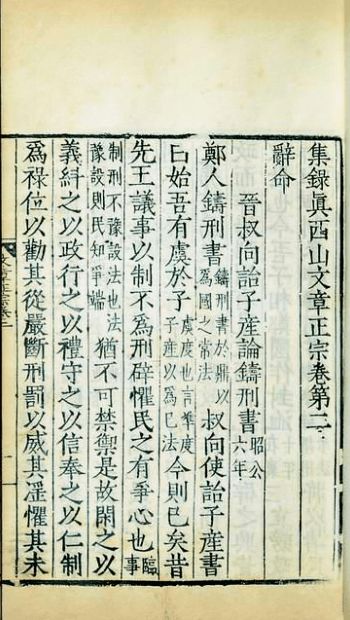 集錄眞西山文章正宗卷第二
辭命
晉叔向詒子產論鑄刑書昭公六年
鄭人鑄刑書鑄刑書於鼎以爲國之常法叔向使詒子產書
曰始吾有虞於子虞度也言準度子產以爲已法今則已矣昔
先王議事以制不爲刑辟懼民之有爭心也臨事
制刑不豫設法也法豫設則民知爭端猶不可禁禦是故閑之以
義糾之以政行之以禮守之以信奉之以仁制
爲祿位以勸其從嚴斷刑罰以威其淫懼其未